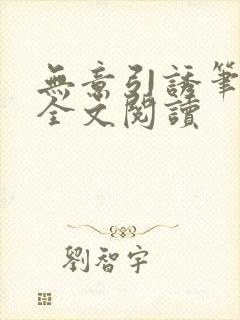 無意引誘筆
全文閱讀
劉智宇